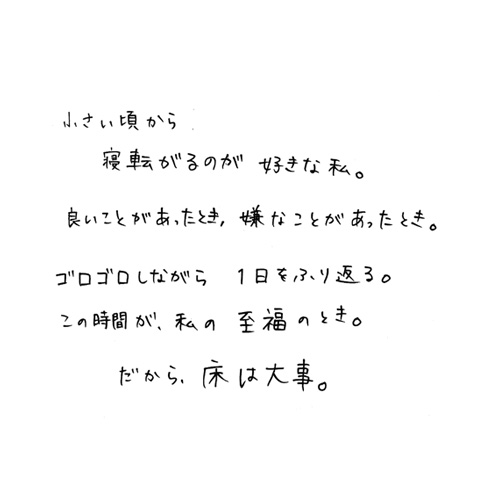 小さい頃から
寝転がるのが 好きな私。
良いことがあったとき, 嫌なことがあったとき。
ゴロゴロしながら 1日をふり返る。
この時間が、私の 至福のとき。
だから、床は大事。